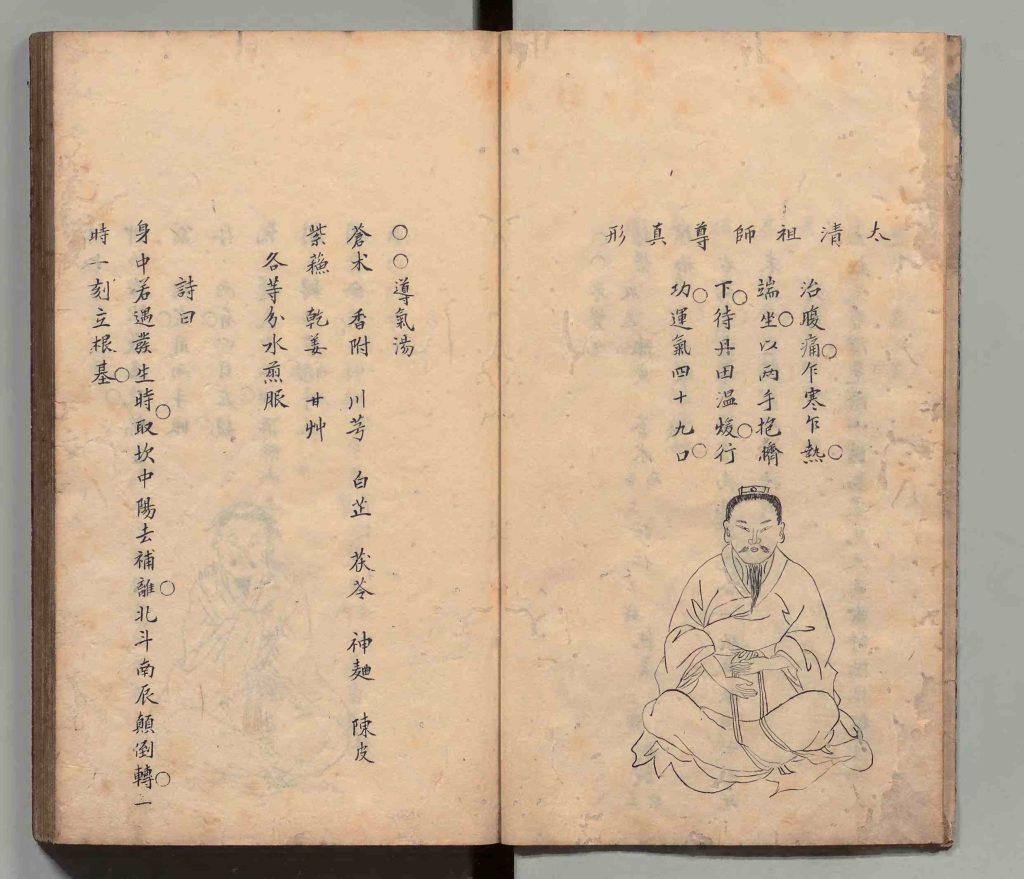 太清祖師尊真形
治腹痛○乍寒乍熱○
端坐○以兩手抱臍
下○待丹田溫煖○行
功○運氣四十九口○
○○導氣湯
蒼术 香附 川芎 白芷 茯苓 神麯 陳皮
紫蘓 乾姜 甘艸
各等分水煎服
詩曰
身中若遇發生時○取坎中陽去補離○北斗南辰顛倒轉○一
時一刻立根基○